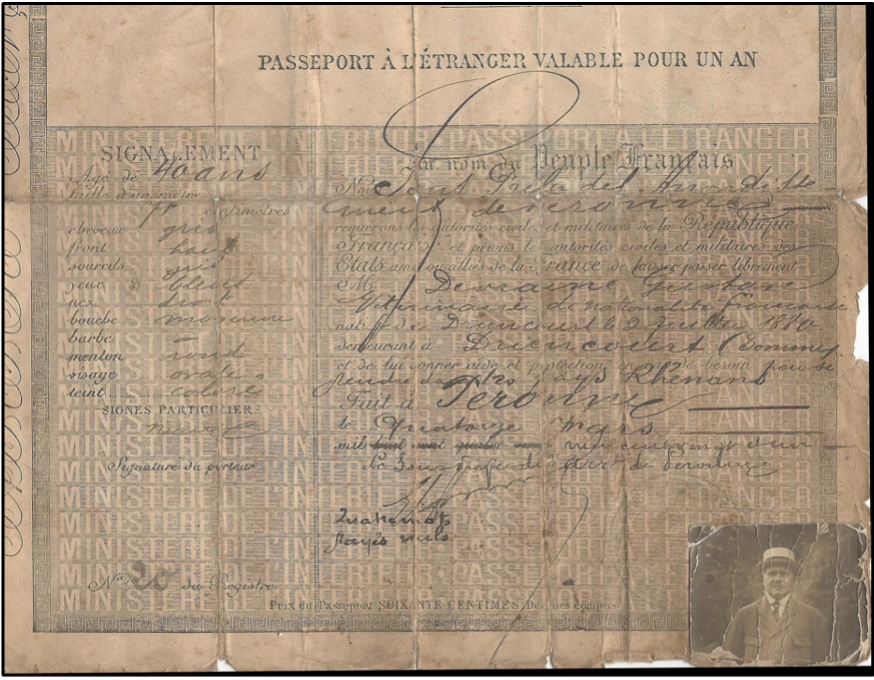 PASSEPORT À L'ÉTRANGER VALABLE POUR UN AN
SIGNALEMENT
Age de 40 ans
taille d'un mètre
centimètres
cheveux gris
front haut
sourcils gris
yeux bleus
nez droit
bouche moyenne
barbe
menton rond
visage ovale
teint coloré
SIGNES PARTICULIERS
Signature du porteur
No 20 du Registre
Au nom du Peuple Français
Nous Sous Préfet de l'Arrondisse
ment de Péronne
requérons les autorités civiles et militaires de la République
Française et prions les autorités civiles et militaires des
États amis ou alliés de la France de laisser passer librement
M Devraine Gustave
Vétérinaire de nationalité française
natif de Driencourt le 2 Juillet 1880
demeurant à Driencourt (Somme)
et de lui donner aide et protection en cas de besoin pour se
rendre dans les pays Rhénans
Fait à Péronne
le Quatorze Mars
mil huit cent quatre neuf cent vingt et un
Le Sous préfet de l'arrt de Péronne
Quatre mots
rayés nuls
Prix du Passeport SOIXANTE CENTIMES
MINISTERE DE L'INTERIEUR PASSEPORT A L'ETRANGER